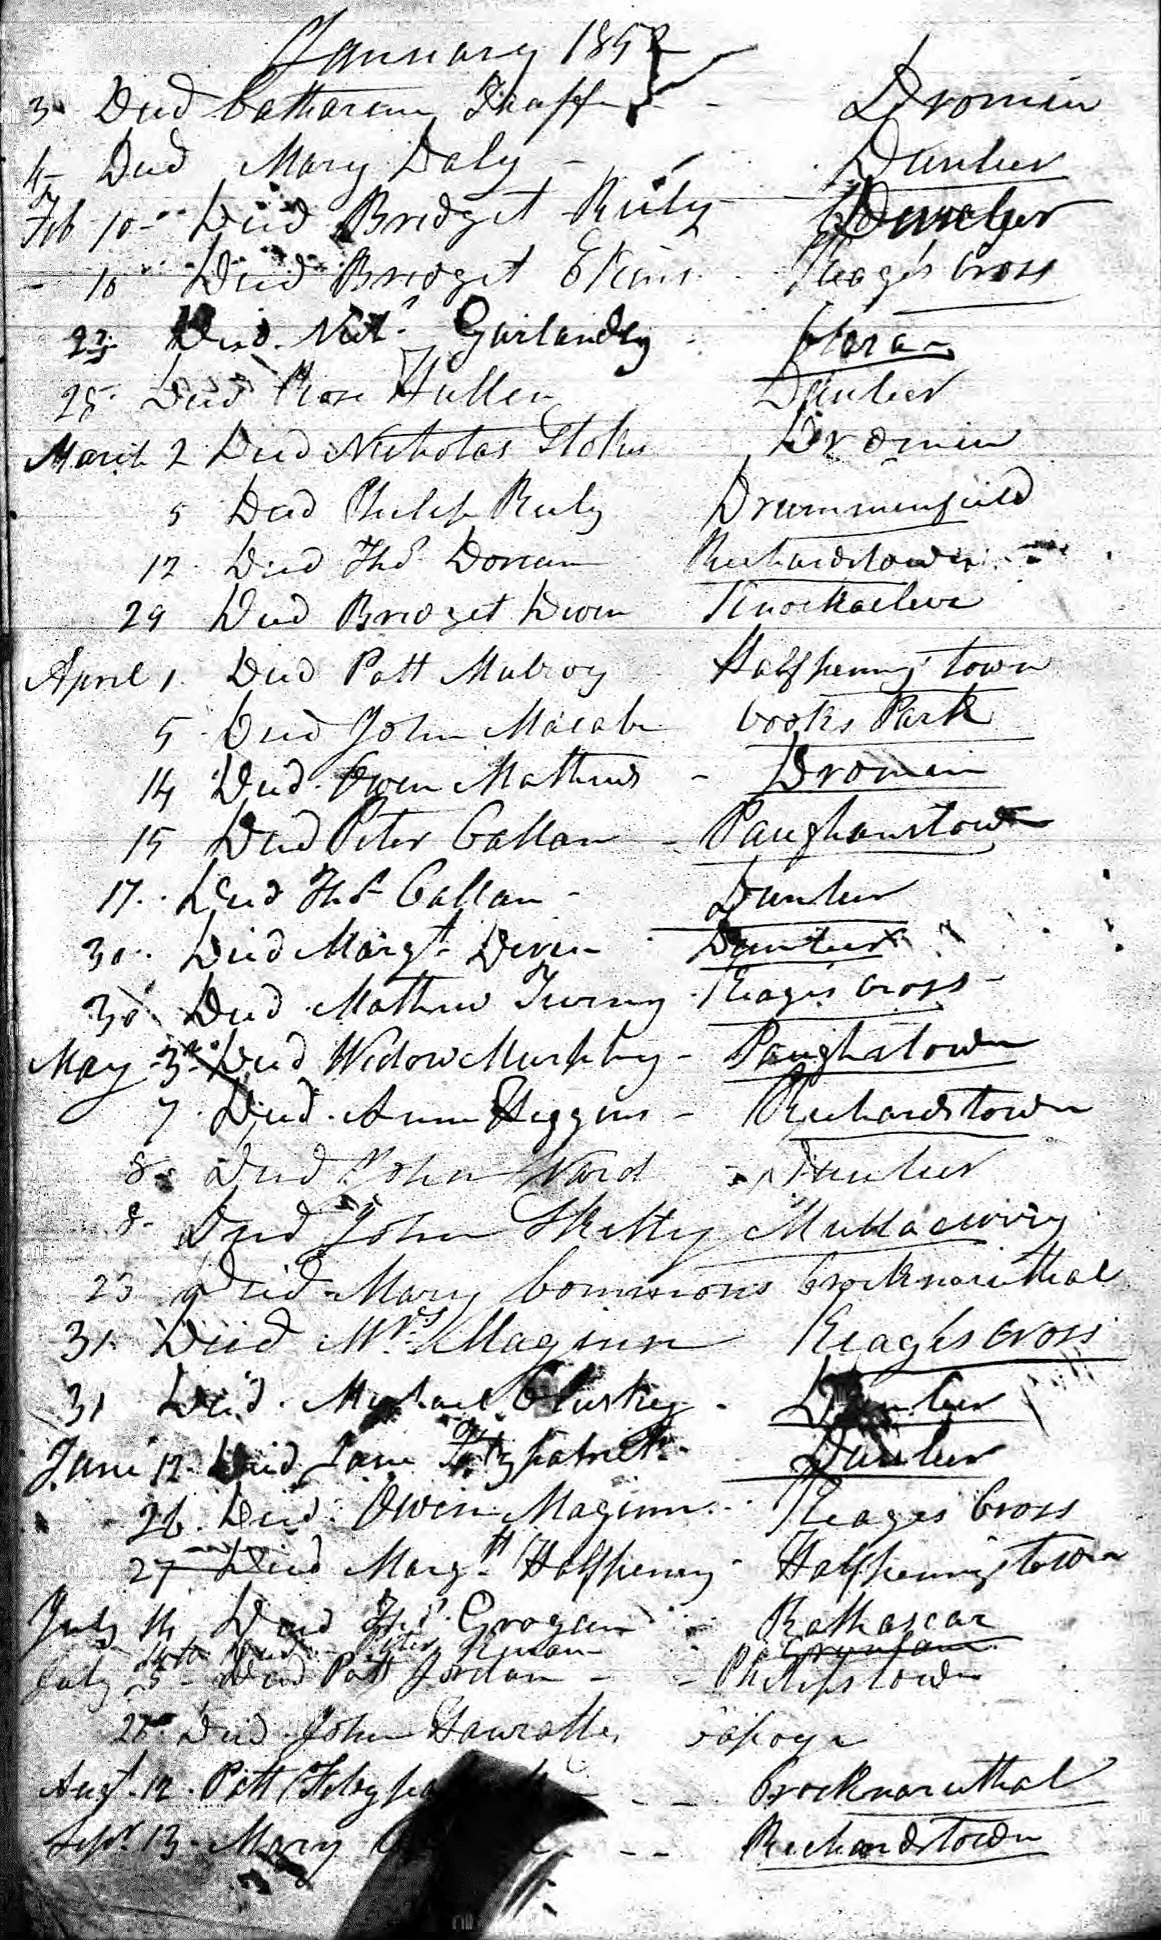 January 1852
3 Died Catharine Taaffe - - Dromin
4 - Died Mary Daly - Dunleer
Feb 10 - Died Bridget Riely - Dunleer
- 10 Died Bridget - Reages Cross
23 Died Garlandy -
25 Died Rose Hullen Dunleer
March 2 Died Nicholas Stokes Dromin
5 Died Philip Riely Drummenfield
12 Died Thos Doncan Richardstown -
29 Died Bridget Diven
April 1 Died Patt Mulroy Halfpennytown
5 - Died John Macabe Cooks Park
14 Died Owen Mathews - Dromin
15 Died Peter Callan - Paughanstown
17 - Died Thos Callan - Dunleer
30 - Died Margt Diven Dunleer
30 Died Mathew Reages Cross -
May 3rd Died Widow Murphy - Paughstown
7 Died Ann Higgins - Richardstown
8 - Died John Ward - Dunleer
8 - Died John Skelly
23 Died Mary Commons Crocknaruthal
31 Died Mrs Maginn Reages Cross
31 Died Michael Cluskey - Dunleer
June 12 Died Jane Fitzpatrick - Dunleer
26 Died Owen Maginn - Reages Cross
27 Died Margtt Halfpenny - Halfpennytown
July 14 Died Thos Grogan Rathascar
Died Peter
July 15 - Died Patt Jordan - - Philipstown
28 Died John
Augt 12 Patt - - Crocknaruthal
Sepr 13 Mary - - Richardstown